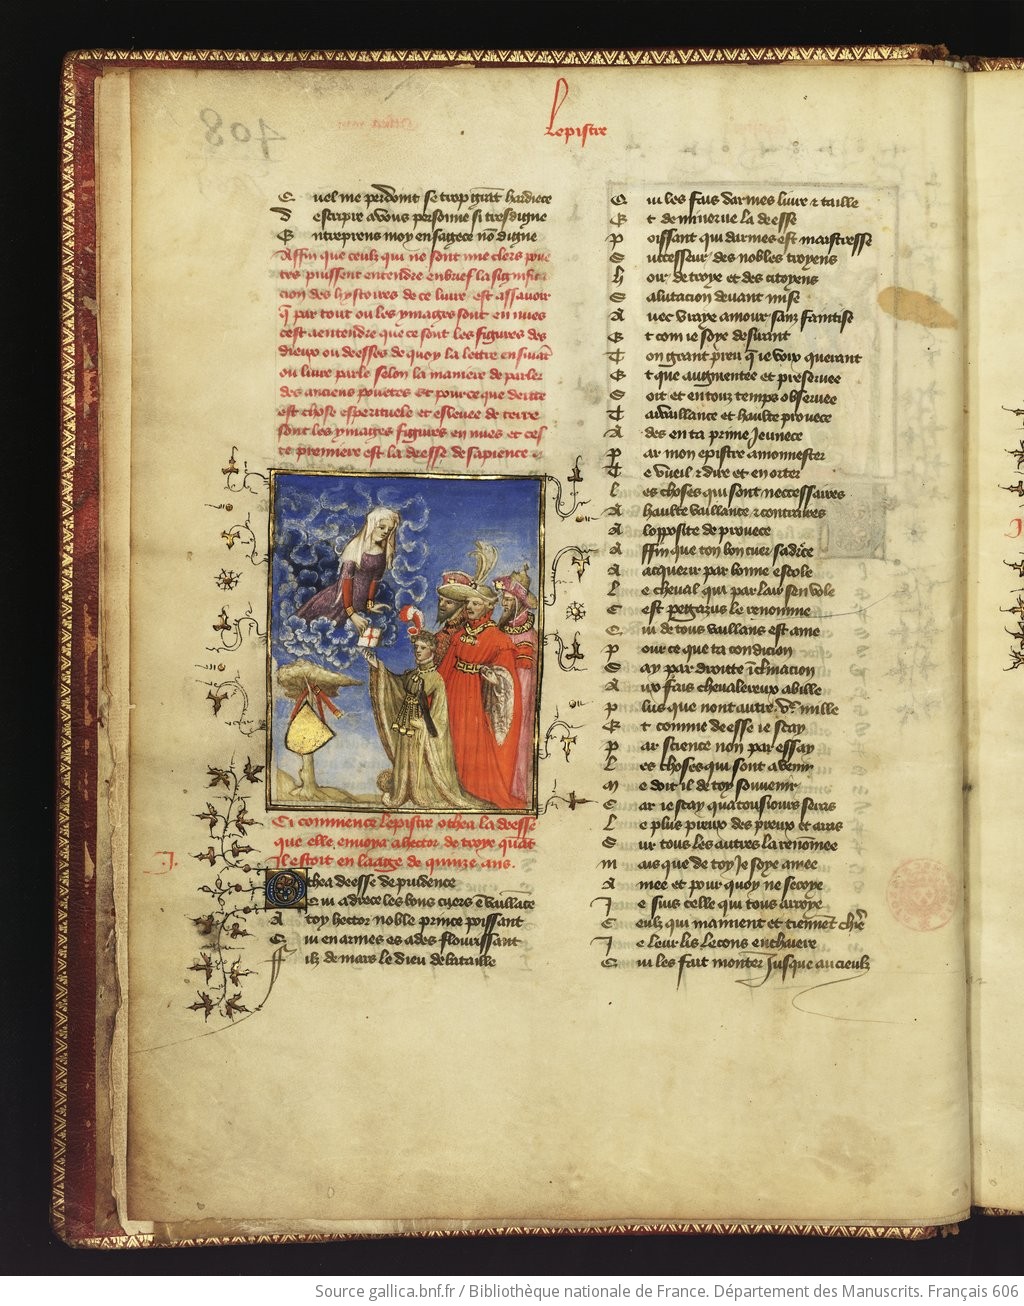 Lepistre
C uil me perdoint se trop grant hardiece
D escripre a vous personne si tres digne
E ntreprens moy en sagece non digne
Affin que ceulx qui ne sont mie clers poe
tes puissent entendre en brief la signifi ca
cion des hystoires de ce livre est assavoir
q par tout ou les ymages sont en nues
cest a entendre que ce sont les figures des
dieux ou deesses de quoy la lettre ensuivat
ou livre parle selon la maniere de parler
des anciens pouetes Et pource que deitte
est chose esperituele et eslevee de terre
sont les ymages figures en nues et ces
te premiere est la deesse de sapience
Ci commence lepistre othea la deesse
que elle envoya a hector de troye quat
il estoit en laage de quinze ans.
J.
O thea deesse de prudence
Q ui adrece les bons cuers e vaillace
A toy hector noble prince poissant
Q ui en armes es ades flourissant
ff ilz de mars le dieu de bataille
Q ui les fais darmes livre et taille
E t de minerve la deesse
P oissant qui darmes est maistresse
S uccesseur des nobles troyens
h oir de troye et des citoyens
S alutacion devant mise
A vec vraye amour sanz faintise
E t com ie soye desirant
T on grant preu q ie voix querant
E t que augmentee et preservee
S oit et en touz temps observee
T a vaillance et haulte prouece
A des en ta prime jeunece
P ar mon epistre amonnester
T e vueil et dire et enorter
L es choses qui sont neccessaires
A haulte vaillance et contraires
A lopposite de prouece
A ffin que ton bon cuer sadrece
A acquerir par bonne escole
L e cheval qui par lair sen vole
C est pegazus le renomme
Q ui de tous vaillans est ame
P our ce que ta condicion
S ay par droitte iclinacion
A ux fais chevalereux abille
P lus que nont autre Vc mille
E t comme deesse ie scay
P ar science non par essay
L es choses qui sont avenir
M e doit il de toy souvenir
C ar ie scay qua tousiours seras
L e plus preux des preux et aras
S ur tous les autres la renomee
M ais que de toy je soye amee
A mee et pour quoy ne le soye
J e suis celle qui tous arroye
C eulx qui maiment et tiennent chiere
J e leur lis lecons en chaiere
Q ui les fait monter jusque aux cieulx
Source gallica.bnf.fr / Bibliothèque nationale de France. Département des Manuscrits. Français 606